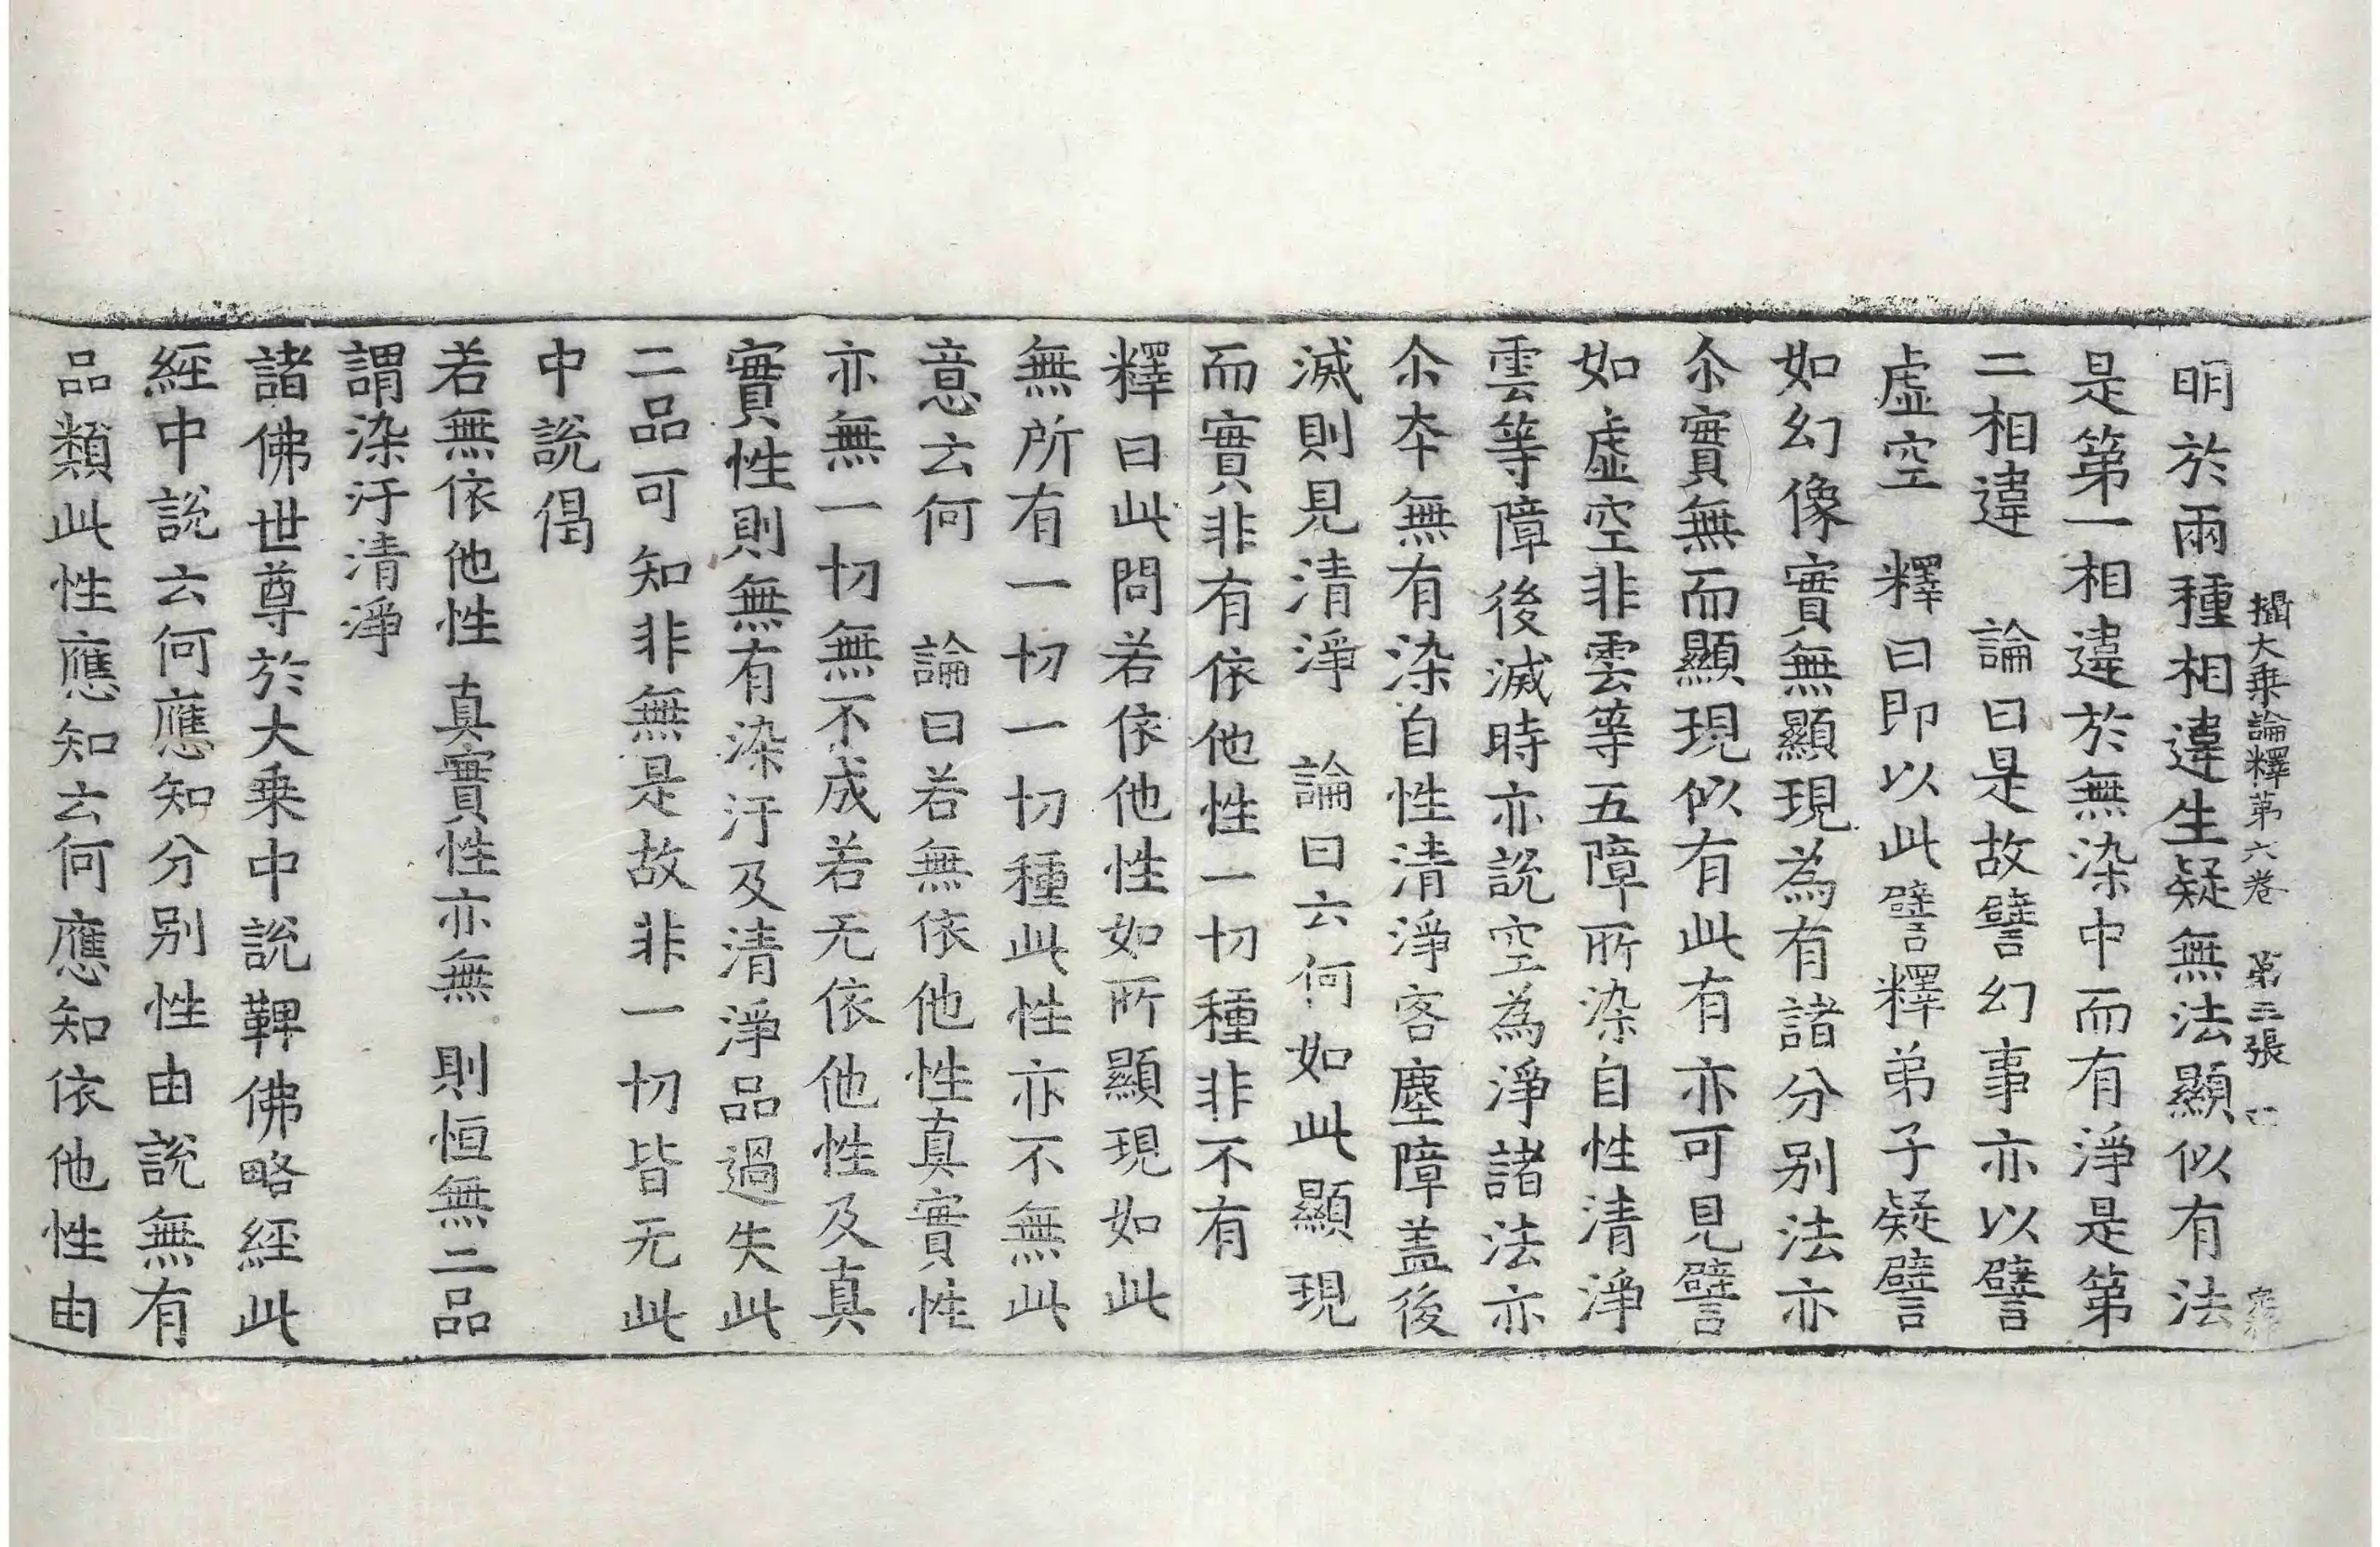 攝大乗論釋第六卷 第三張
明於兩種相違生疑無法顯似有法
是第一相違於無染中而有淨是第
二相違 論曰是故譬幻事亦以譬
虛空 釋曰即以此譬釋弟子疑譬
如幻像實無顯現為有諸分別法亦
尒實無而顯現似有此有亦可見譬
如虛空非雲等五障所染自性清淨
雲等障後滅時亦說空為淨諸法亦
尒本無有染自性清淨客塵障蓋後
滅則見清淨 論曰云何如此顯現
而實非有依他性一切種非不有
釋曰此問若依他性如所顯現如此
無所有一切一切種此性亦不無此
意云何 論曰若無依他性真實性
亦無一切無不成若无依他性及真
實性則無有染汙及清淨品過失此
二品可知非無是故非一切皆无此
中說偈
若無依他性 真實性亦無 則恒無二品
謂染汙清淨
諸佛世尊於大乗中說鞞佛略經此
經中說云何應知分別性由說無有
品類此性應知云何應知依他性由